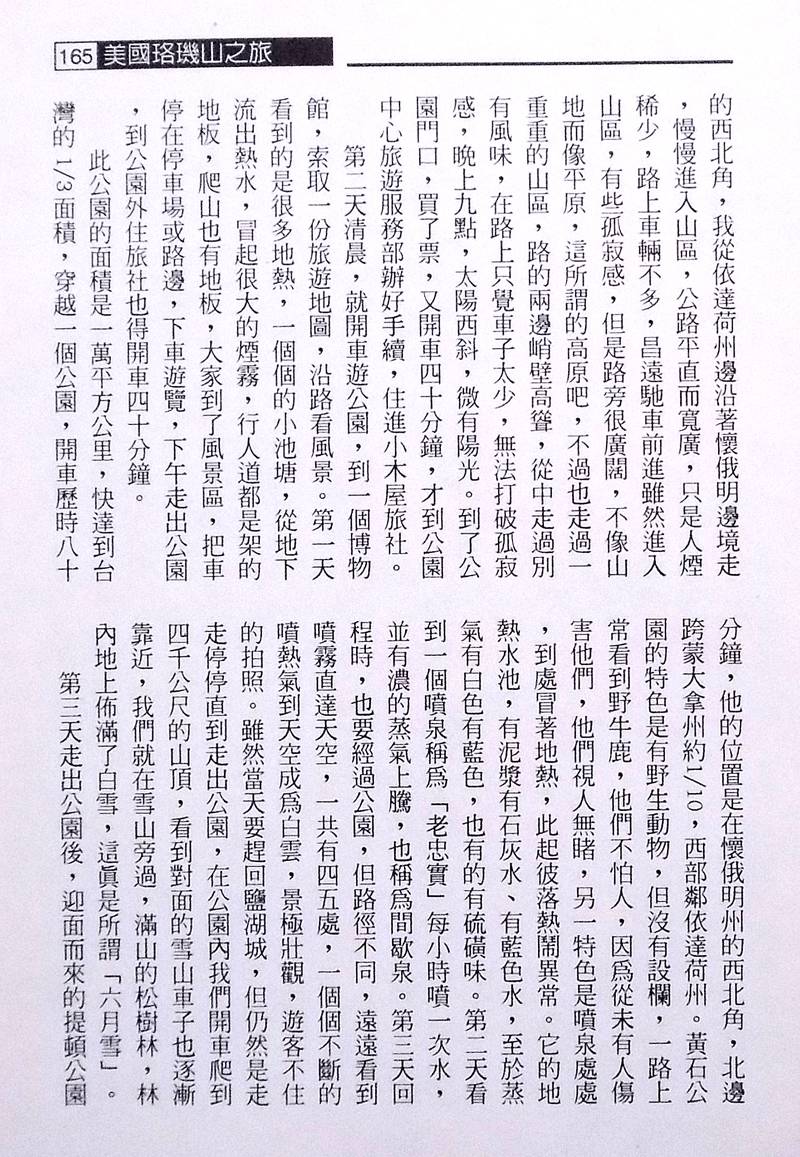 165 美國珞璣山之旅
的西北角，我從依達荷州邊沿著懷俄明邊境走
，慢慢進入山區，公路平直而寬廣，只是人煙
稀少，路上車輛不多，昌遠馳車前進雖然進入
山區，有些孤寂感，但是路旁很廣闊，不像山
地而像平原，這所謂的高原吧，不過也走過一
重重的山區，路的兩邊峭壁高聳，從中走過別
有風味，在路上只覺車子太少，無法打破孤寂
感，晚上九點，太陽西斜，微有陽光。到了公
園門口，買了票，又開車四十分鐘，才到公園
中心旅遊服務部辦好手續，住進小木屋旅社。
第二天清晨，就開車遊公園，到一個博物
館，索取一份旅遊地圖，沿路看風景。第一天
看到的是很多地熱，一個個的小池塘，從地下
流出熱水，冒起很大的煙霧，行人道都是架的
地板，爬山也有地板，大家到了風景區，把車
停在停車場或路邊，下車遊覽，下午走出公園
，到公園外住旅社也得開車四十分鐘。
此公園的面積是一萬平方公里，快達到台
灣的 1/3 面積，穿越一個公園，開車歷時八十
分鐘，他的位置是在懷俄明州的西北角，北邊
跨蒙大拿州約 1/10，西部鄰依達荷州。黃石公
園的特色是有野生動物，但沒有設欄，一路上
常看到野牛鹿，他們不怕人，因爲從未有人傷
害他們，他們視人無睹，另一特色是噴泉處處
，到處冒著地熱，此起彼落熱鬧異常。它的地
熱水池，有泥漿有石灰水、有藍色水，至於蒸
氣有白色有藍色，也有的有硫磺味。第二天看
到一個噴泉稱爲「老忠實」每小時噴一次水，
並有濃的蒸氣上騰，也稱爲間歇泉。第三天回
程時，也要經過公園，但路徑不同，遠遠看到
噴霧直達天空，一共有四五處，一個個不斷的
噴熱氣到天空成爲白雲，景極壯觀，遊客不住
的拍照。雖然當天要趕回鹽湖城，但仍然是走
走停停直到走出公園，在公園內我們開車爬到
四千公尺的山頂，看到對面的雪山車子也逐漸
靠近，我們就在雪山旁過，滿山的松樹林，林
內地上佈滿了白雪，這眞是所謂「六月雪」。
第三天走出公園後，迎面而來的提頓公園